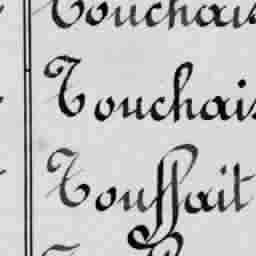 Touchais
Touchais
Touffait